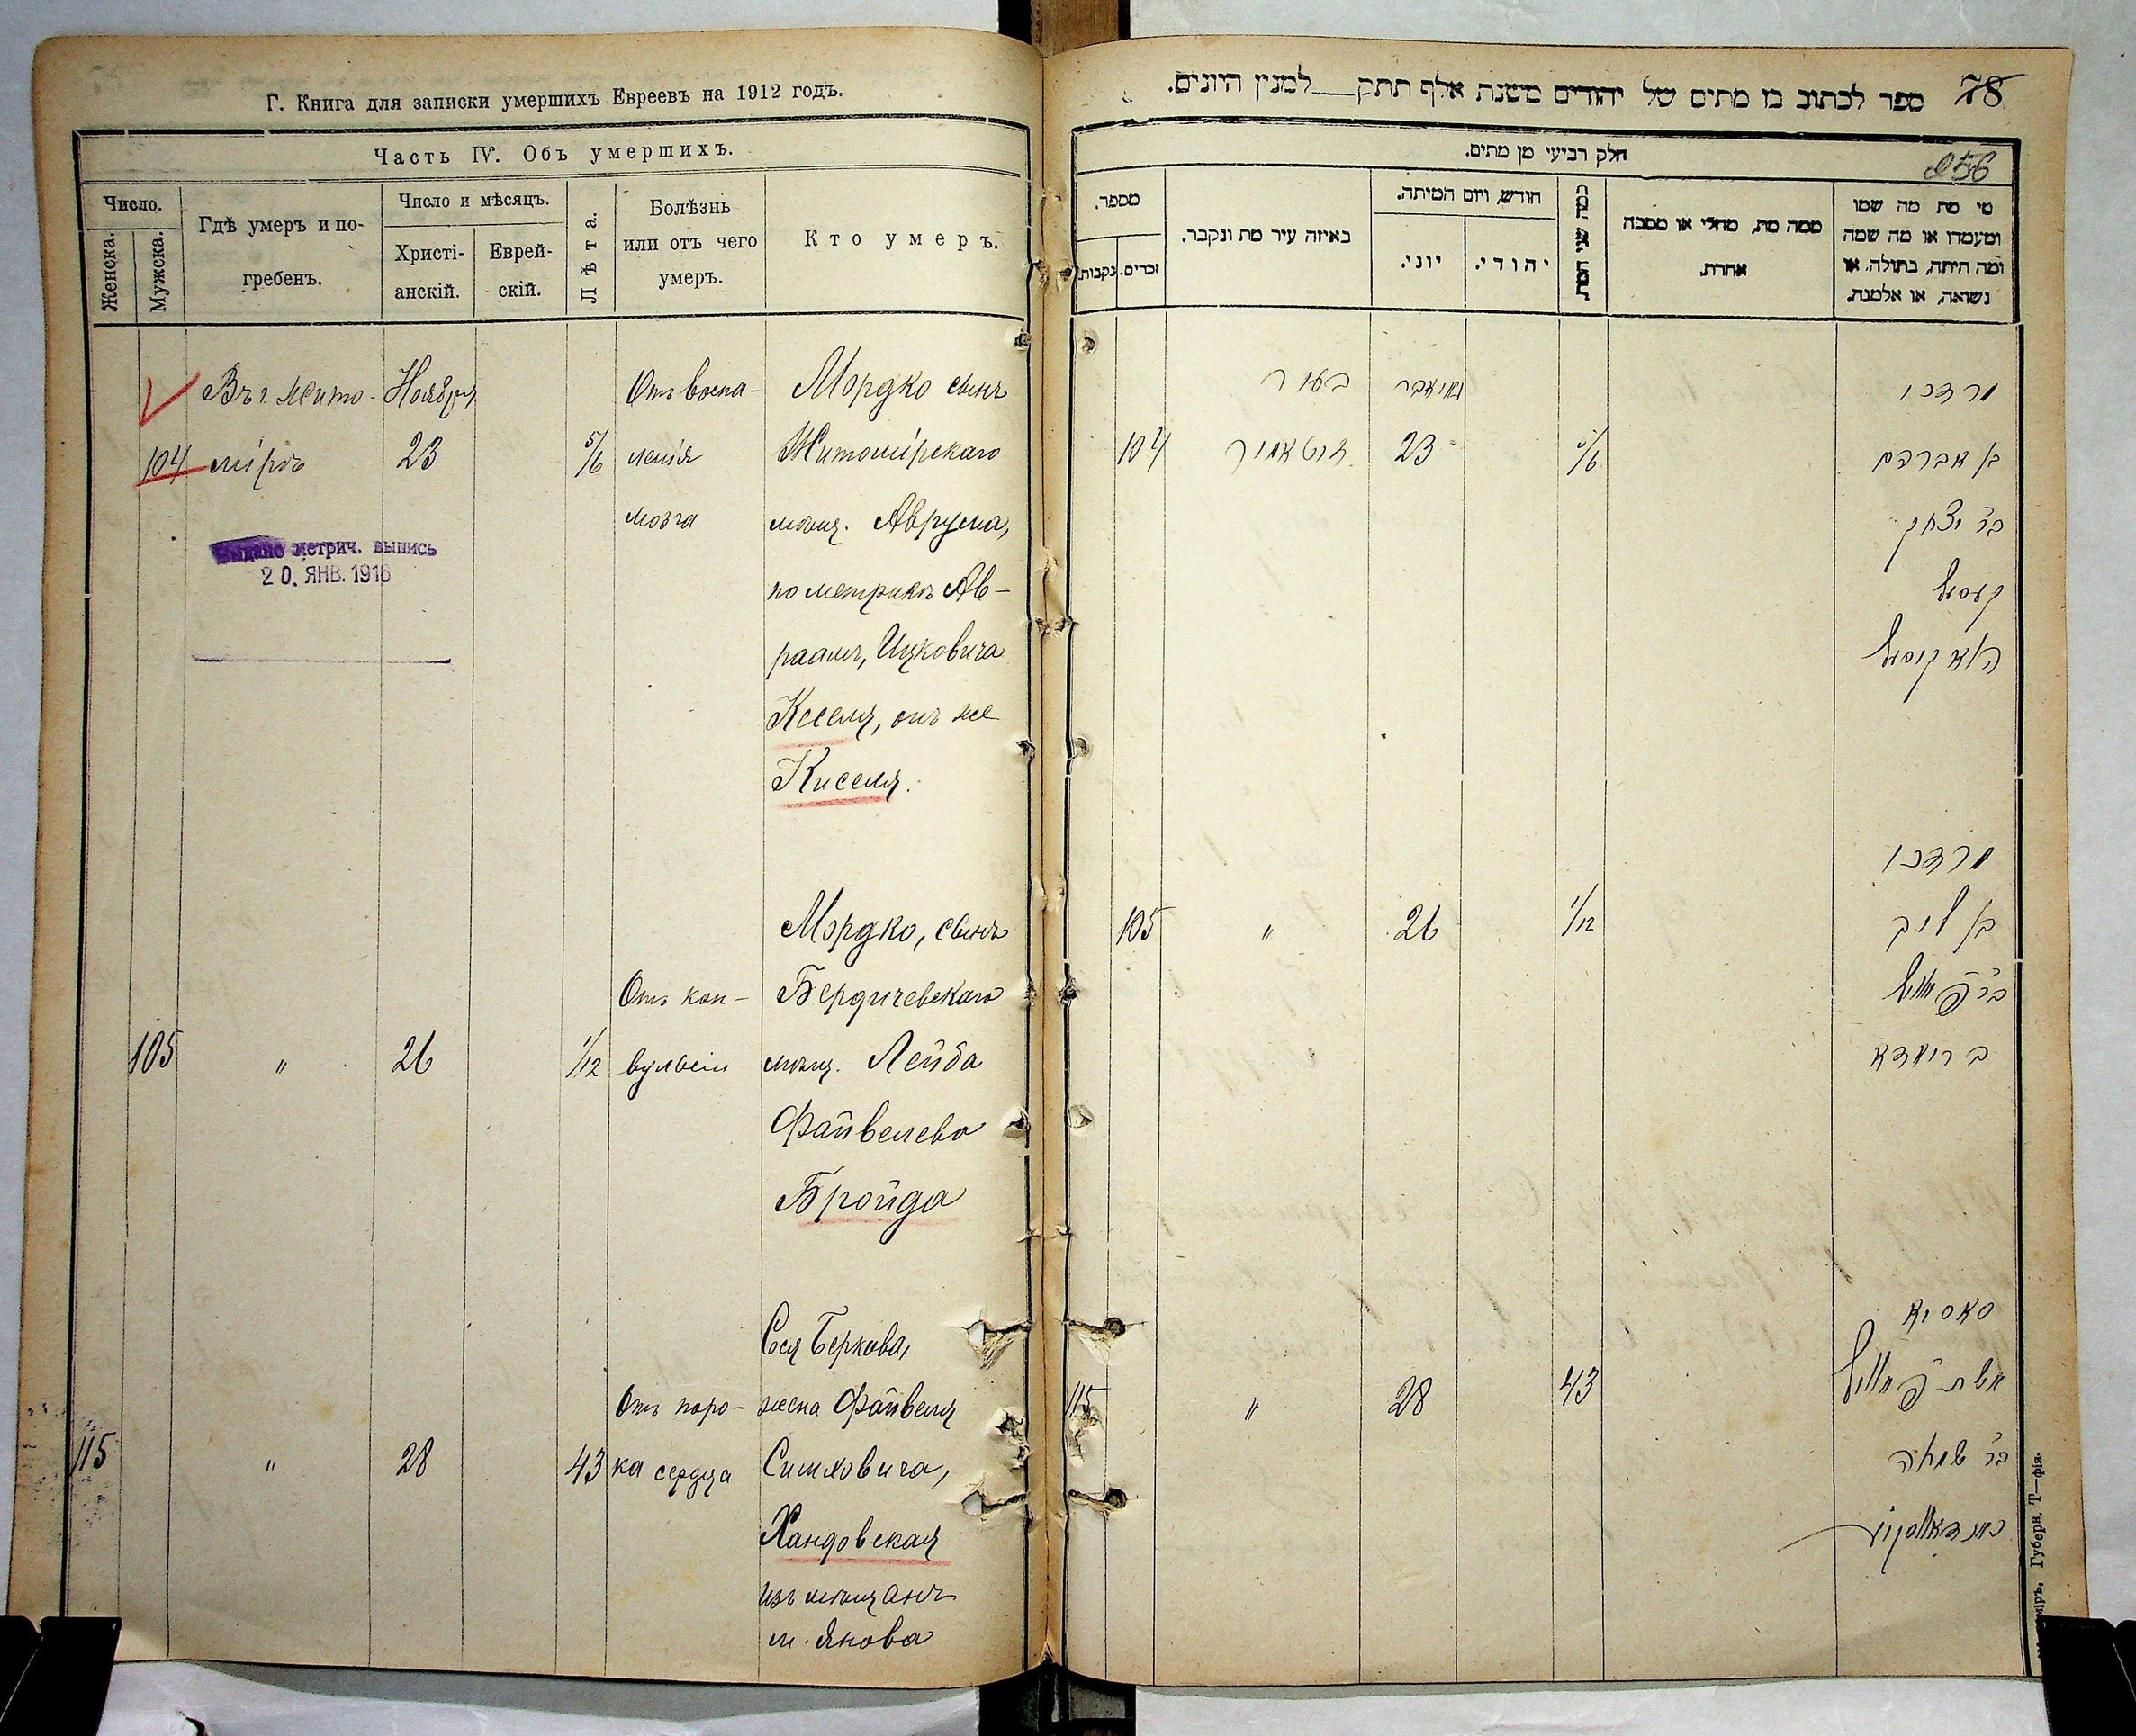 Г. Книга для записки умершихъ Евреевъ на 1912 годъ.
Часть IV. Объ умершихъ.
Число.
Женска.
Мужска.
Гдѣ умеръ и по-
гребенъ.
Число и мѣсяцъ.
Христі-
анскій.
Еврей-
скій.
Лѣта.
Болѣзнь
или отъ чего
умеръ.
Кто умеръ.
Въ г. Жито- Ноября Отъ воспа- Мордко сынъ
104 мірѣ 23 5/6 ленія Житомірскаго
мозга мѣщ. Аврума,
Выдано метрич. выпись
20. ЯНВ. 1916
по метрикѣ Ав-
раамъ, Ицковича
Кеселя, онъ же
Киселя.
Мордко, сынъ
Отъ кон- Бердичевскаго
105 " 26 1/12 вульсіи мѣщ. Лейба
Файвелева
Бройда
Сося Беркова,
Отъ поро- жена Файвеля
115 " 28 43 ка сердца Симховича,
Хандовская
изъ мѣщанъ
м. Янова
78
ספר לכתוב בו מתים של יהודים משנת אלף תתק למנין היונים.
חלק רביעי מן מתים.
256
מספר.
זכרים.
נקבות.
באיזה עיר מת ונקבר.
חודש, ויום המיתה.
יוני.
יהודי.
כמה שני המת.
ממה מת, מחלי או מסבה
אחרת.
מי מת מה שמו
ומעמדו או מה שמה
ומה היתה, בתולה, או
נשואה, או אלמנה.
בעיר נאיאבר מרדכי
104 זיטאמיר 23 5/6 בן אברהם
בר יצחק
קעסיל
הוא קיסיל
מרדכי
105 " 26 1/12 בן ליב
בר פייוויל
ברוידא
סאסיא
115 " 28 43 אשת פייוויל
בר שמחה